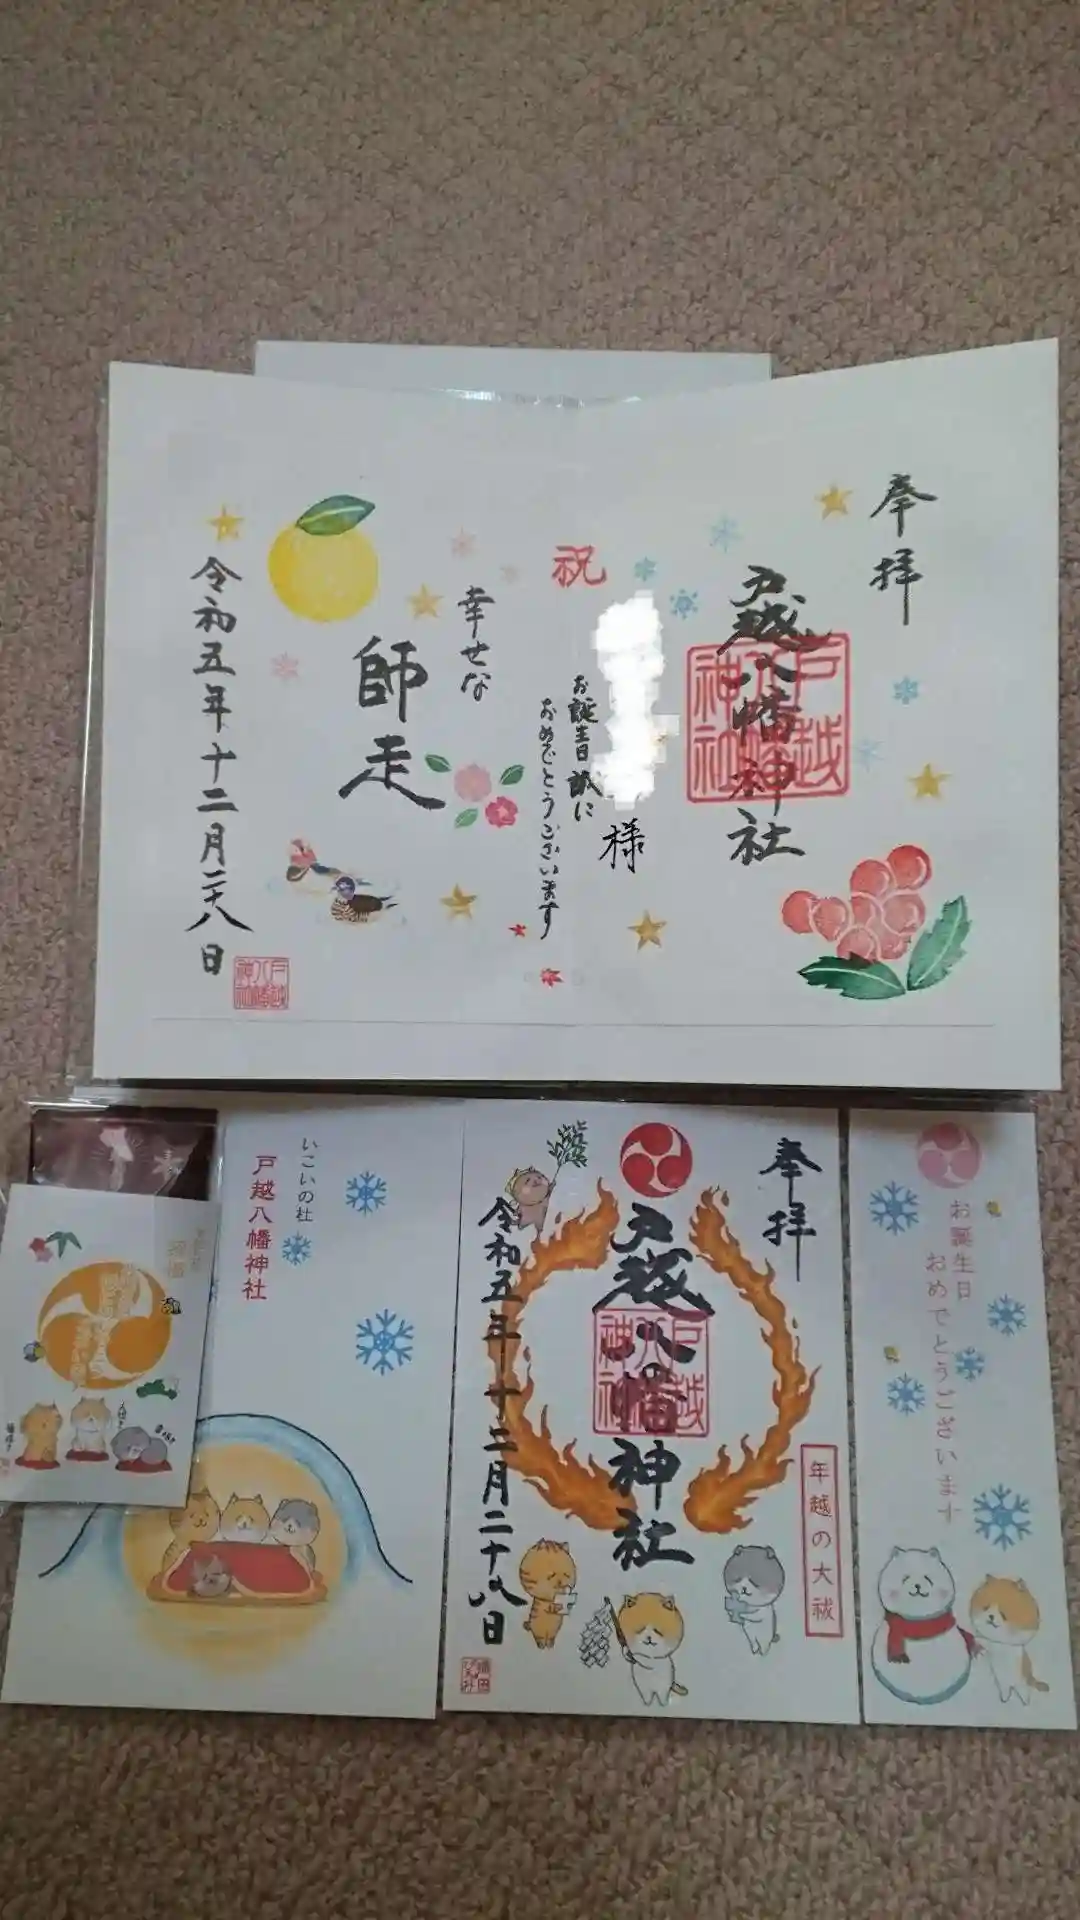 奉拝
戸越八幡神社
戸越八幡神社
様
祝
お誕生日誠に
おめでとうございます
幸せな
師走
令和五年十二月二十八日
戸越八幡神社
いこいの杜
戸越八幡神社
奉拝
戸越八幡神社
戸越八幡神社
令和五年十二月二十八日
年越の大祓
お誕生日
おめでとうございます